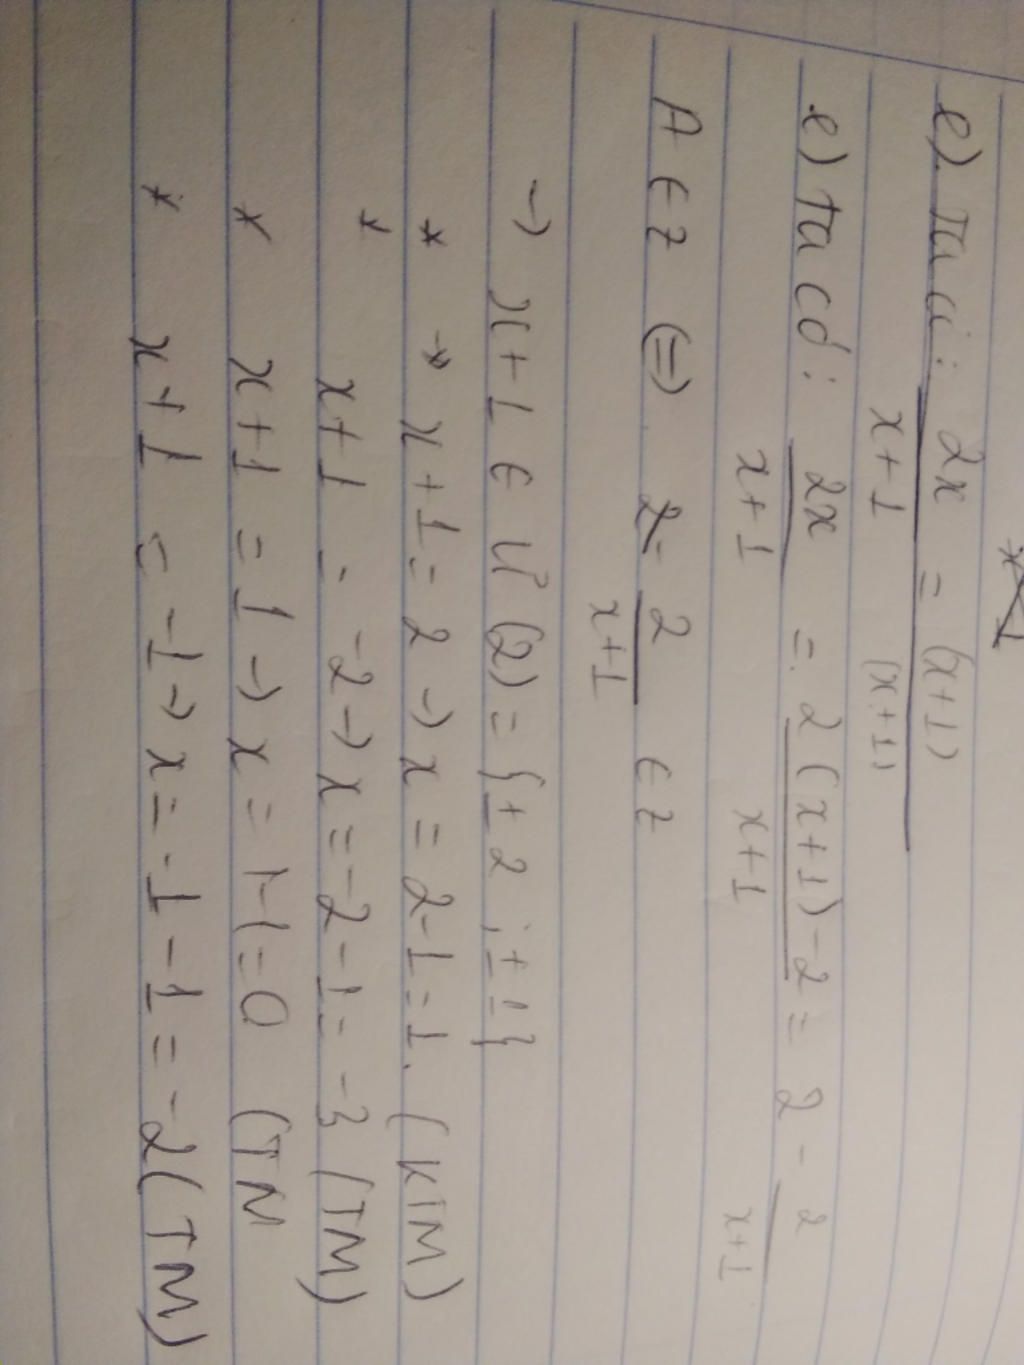 e). Ta có: 2x/x+1 = (x+1)/(x+1)
e) ta có: 2x/x+1 = 2(x+1)-2/x+1 = 2 - 2/x+1
A ∈ Z (=) 2 - 2/x+1 ∈ Z
→ x+1 ∈ Ư(2) = {±2; ±1}
* → x+1 = 2 → x = 2-1 = 1. (KTM)
* x+1 = -2 → x = -2-1 = -3 (TM)
* x+1 = 1 → x = 1-1 = 0 (TM
* x+1 = -1 → x = -1-1 = -2 (TM)